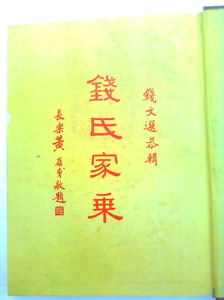 錢文選恭輯
錢氏家乘
長樂黃
敬題